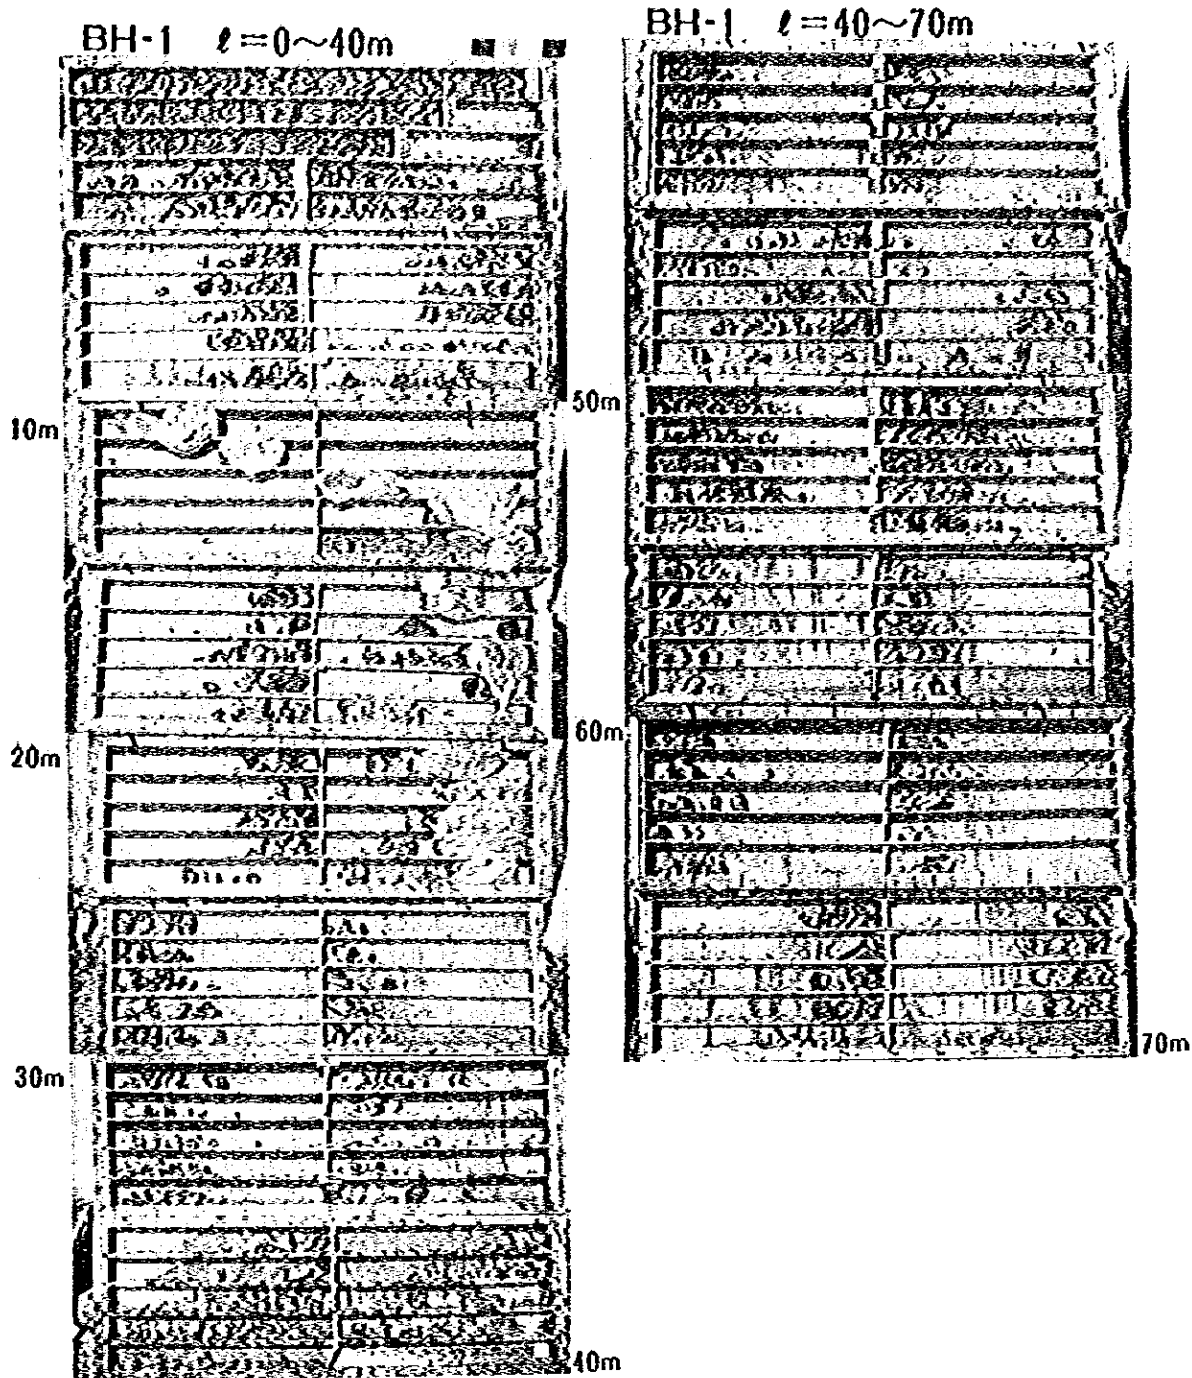 BH-1 ℓ=0～40m
10m
20m
30m
40m
BH-1 ℓ=40～70m
50m
60m
70m